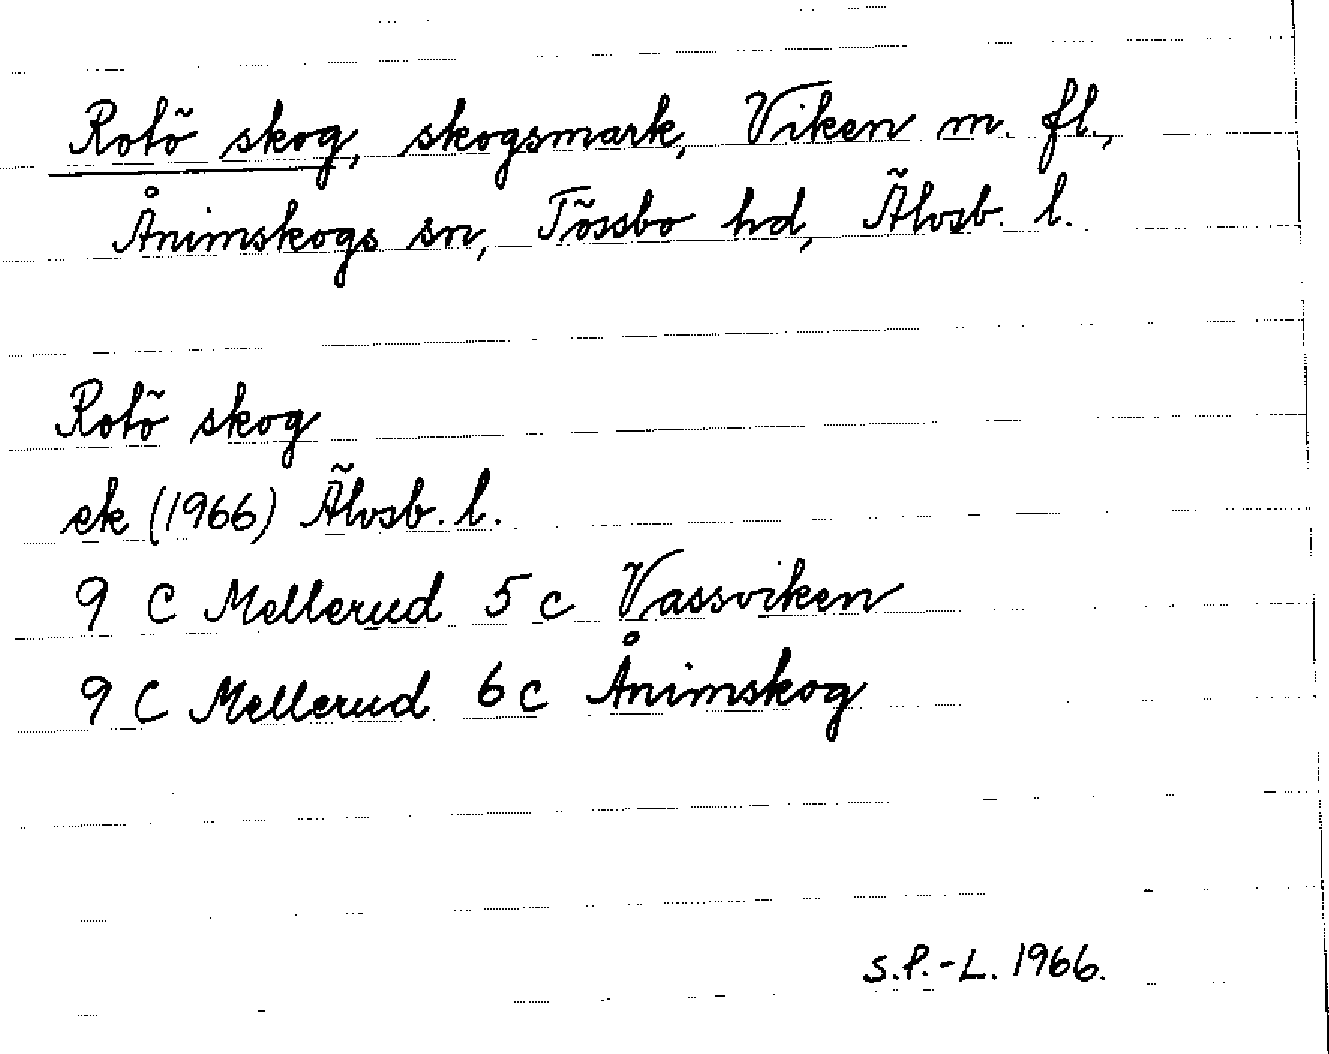 Rotö skog, skogsmark, Viken m. fl.,
Ånimskogs sn, Tössbo hd, Älvsb. l.
Rotö skog
ek (1966) Älvsb. l.
9 C Mellerud 5 c Vassviken
9 C Mellerud 6 c Ånimskog
S.P.-L. 1966.